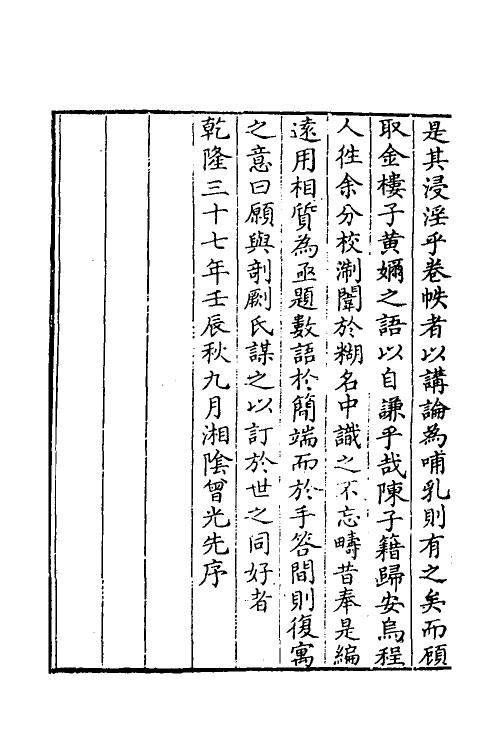 是其浸淫乎卷帙者以講論為哺乳則有之矣而顧
取金樓子黄嬭之語以自謙乎哉陳子籍歸安烏程
人徃余分校淛闈於糊名中識之不忘疇昔奉是編
逺用相質為亟題數語於簡端而於手答間則復寓
之意曰願與剞劂氏謀之以訂於世之同好者
乾隆三十七年壬辰秋九月湘隂曾光先序